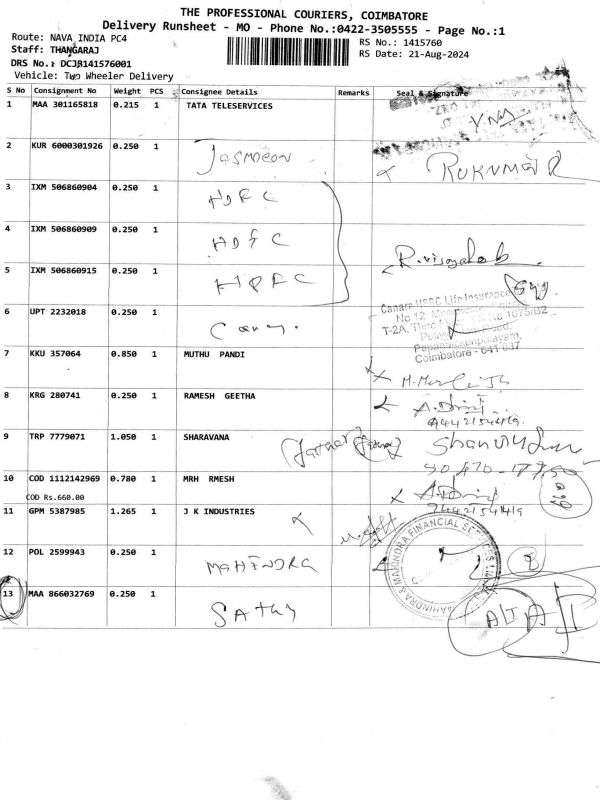 THE PROFESSIONAL COURIERS, COIMBATORE
Delivery Runsheet - MO - Phone No.:0422-3505555 - Page No.:1
Route: NAVA INDIA PC4
RS No.: 1415760
Staff: THANGARAJ
RS Date: 21-Aug-2024
DRS No.: DCJB141576001
Vehicle: Two Wheeler Delivery
S No Consignment No Weight PCS Consignee Details Remarks Seal & Signature
1 MAA 301165818 0.215 1 TATA TELESERVICES
2 KUR 6000301926 0.250 1
RUKUMANI R
3 IXM 506860904 0.250 1 HDFC
4 IXM 506860909 0.250 1 HDFC
5 IXM 506860915 0.250 1 HDFC
6 UPT 2232018 0.250 1
Canara HSBC Life Insurance
No 12
T-2A, Third 1075/B2
Pappanaickenpalayam,
Coimbatore - 641 037
7 KKU 357064 0.850 1 MUTHU PANDI
8 KRG 280741 0.250 1 RAMESH GEETHA
9442154419
9 TRP 7779071 1.050 1 SHARAVANA
10 COD 1112142969 0.780 1 MRH RMESH
COD Rs.660.00
9442154419
11 GPM 5387985 1.265 1 J K INDUSTRIES
12 POL 2599943 0.250 1 MAHINDRA
MAHINDRA & MAHINDRA FINANCIAL SERVICES LTD
13 MAA 866032769 0.250 1 SATHY